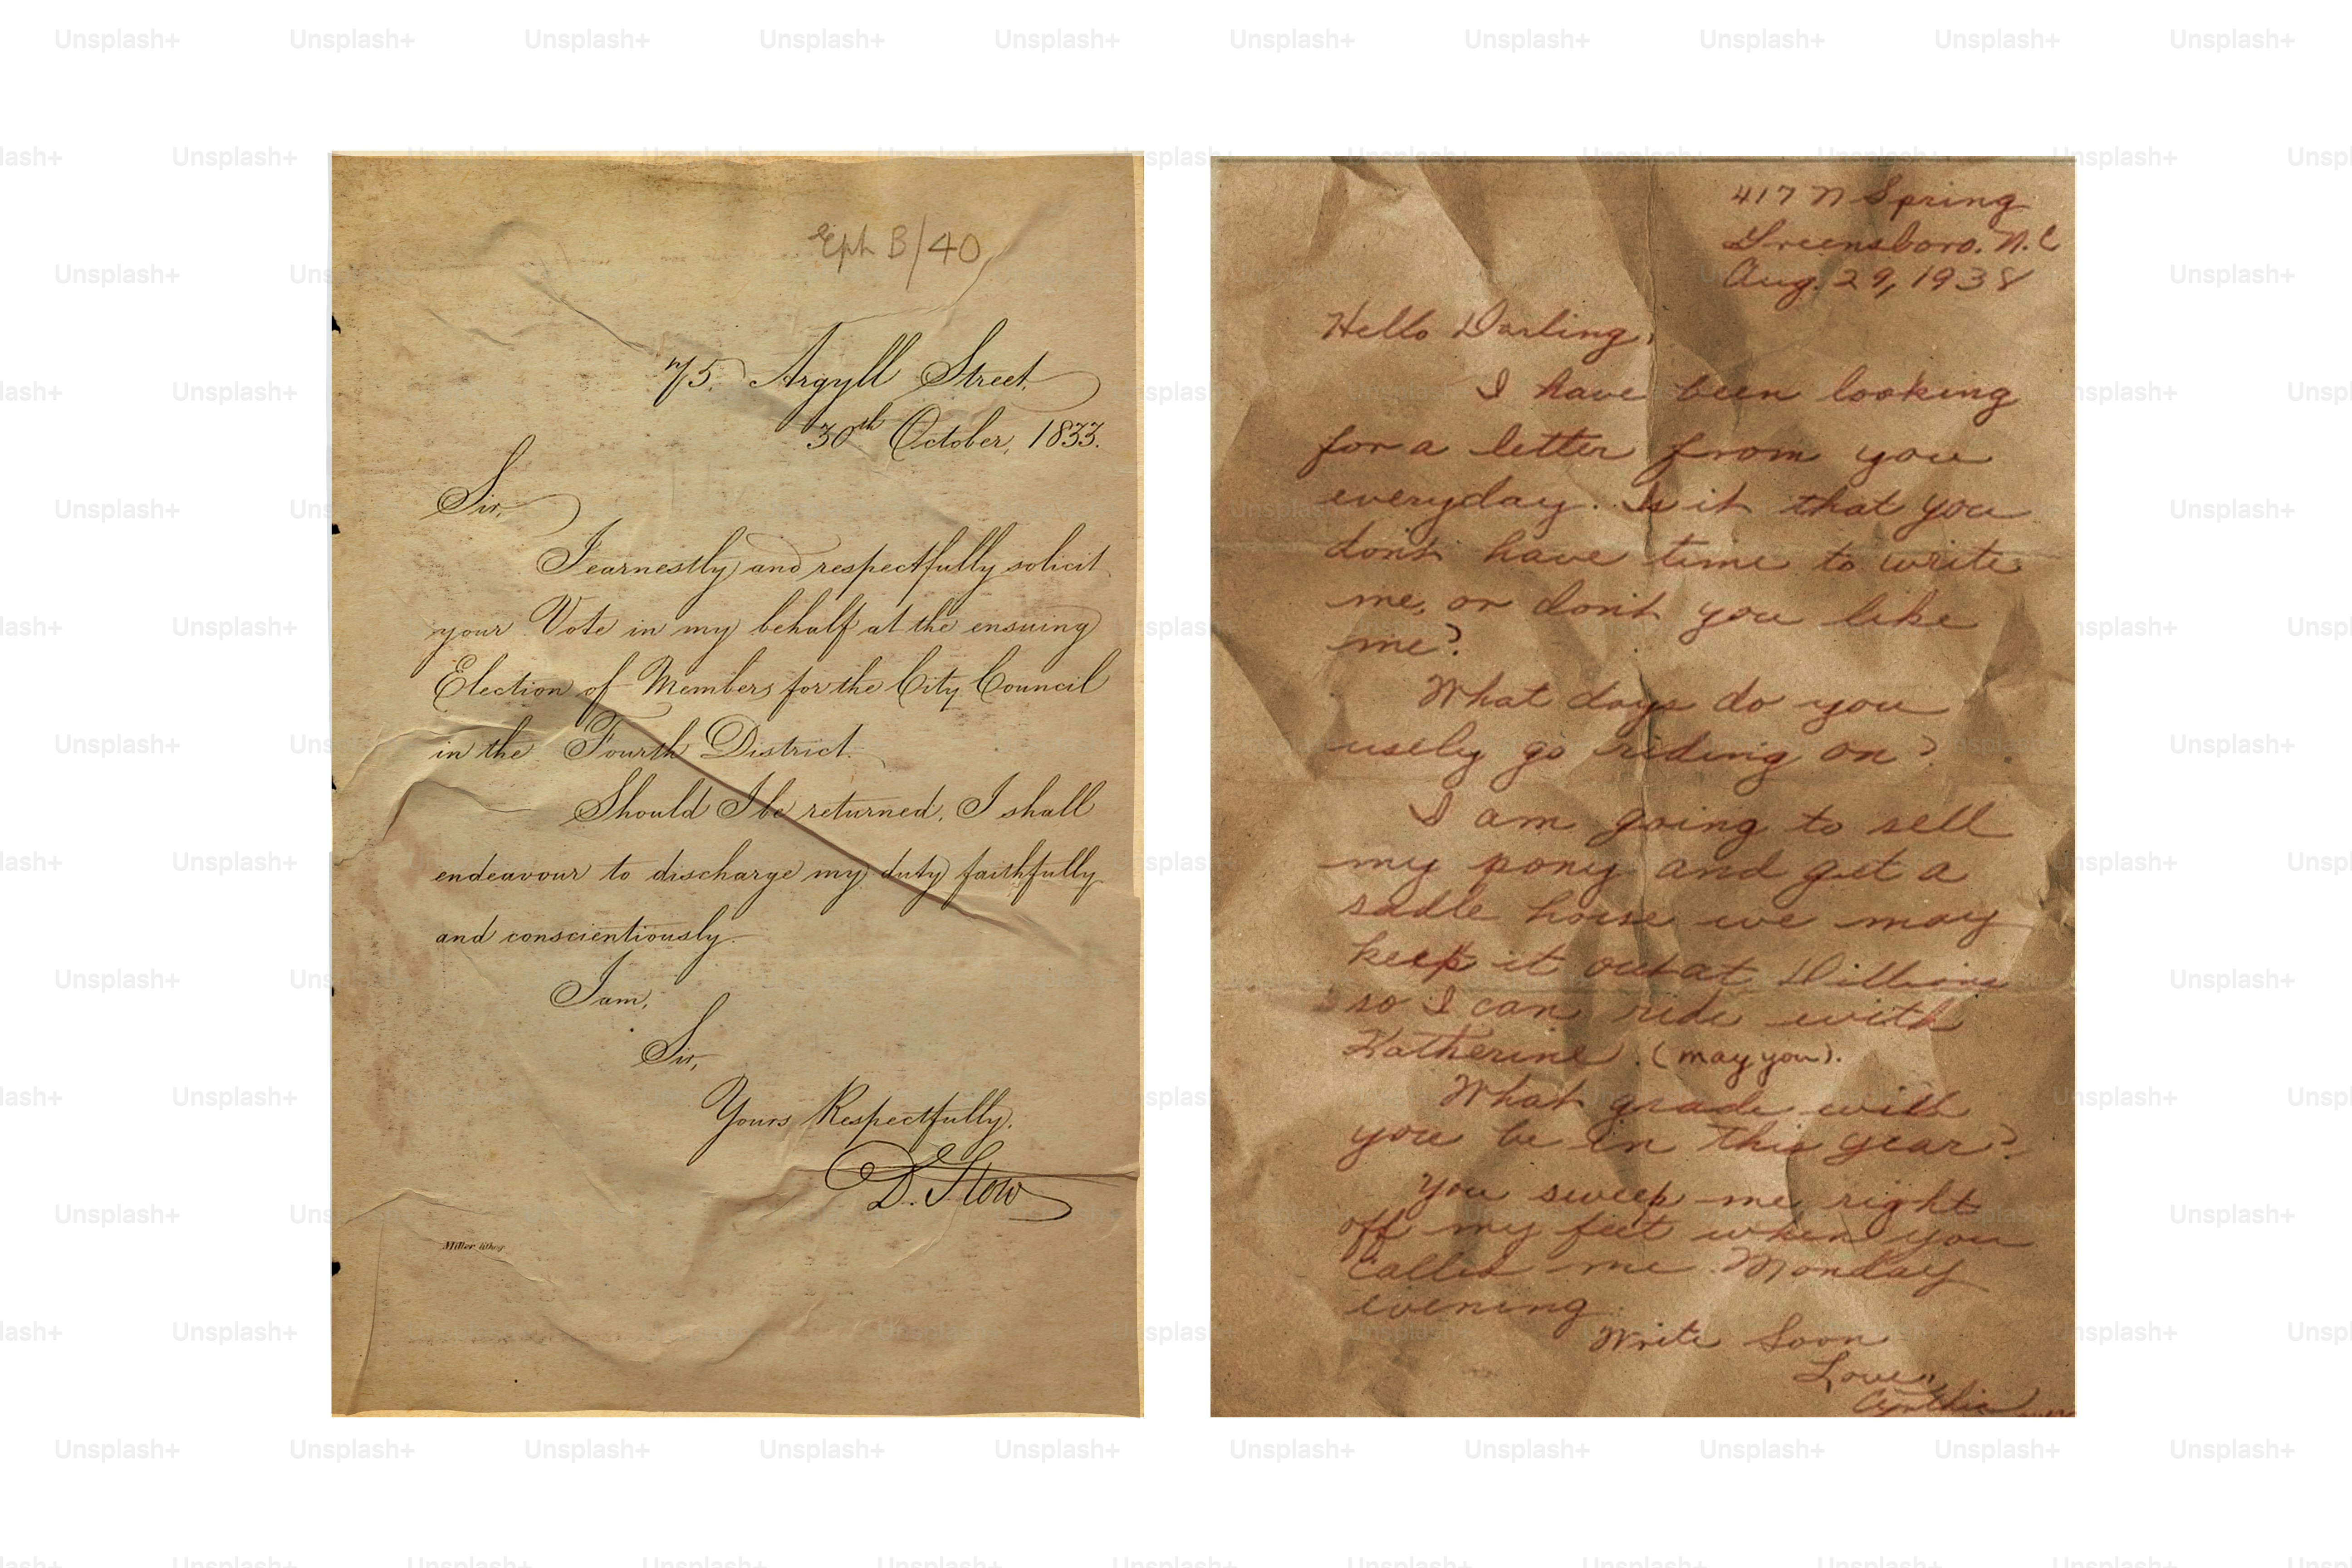 Eph B/40
75. Argyll Street.
30th October, 1833.
Sir,
I earnestly and respectfully solicit
your Vote in my behalf at the ensuing
Election of Members for the City Council
in the Fourth District.
Should I be returned, I shall
endeavour to discharge my duty faithfully
and conscientiously.
I am,
Sir,
Yours Respectfully,
D. Stow
Miller lithog
417 N Spring
Greensboro. N.C
Aug. 29, 1938
Hello Darling,
I have been looking
for a letter from you
everyday. Is it that you
dont have time to write
me, or don't you like
me?
What days do you
usely go riding on?
I am going to sell
my pony and get a
sadle horse we may
keep it out at Dillions
so I can ride with
Katherine. (may you).
What grade will
you be in this year?
You sweep me right
off my feet when you
called me Monday
evening.
Write Soon
Love,
Cynthia
Unsplash+